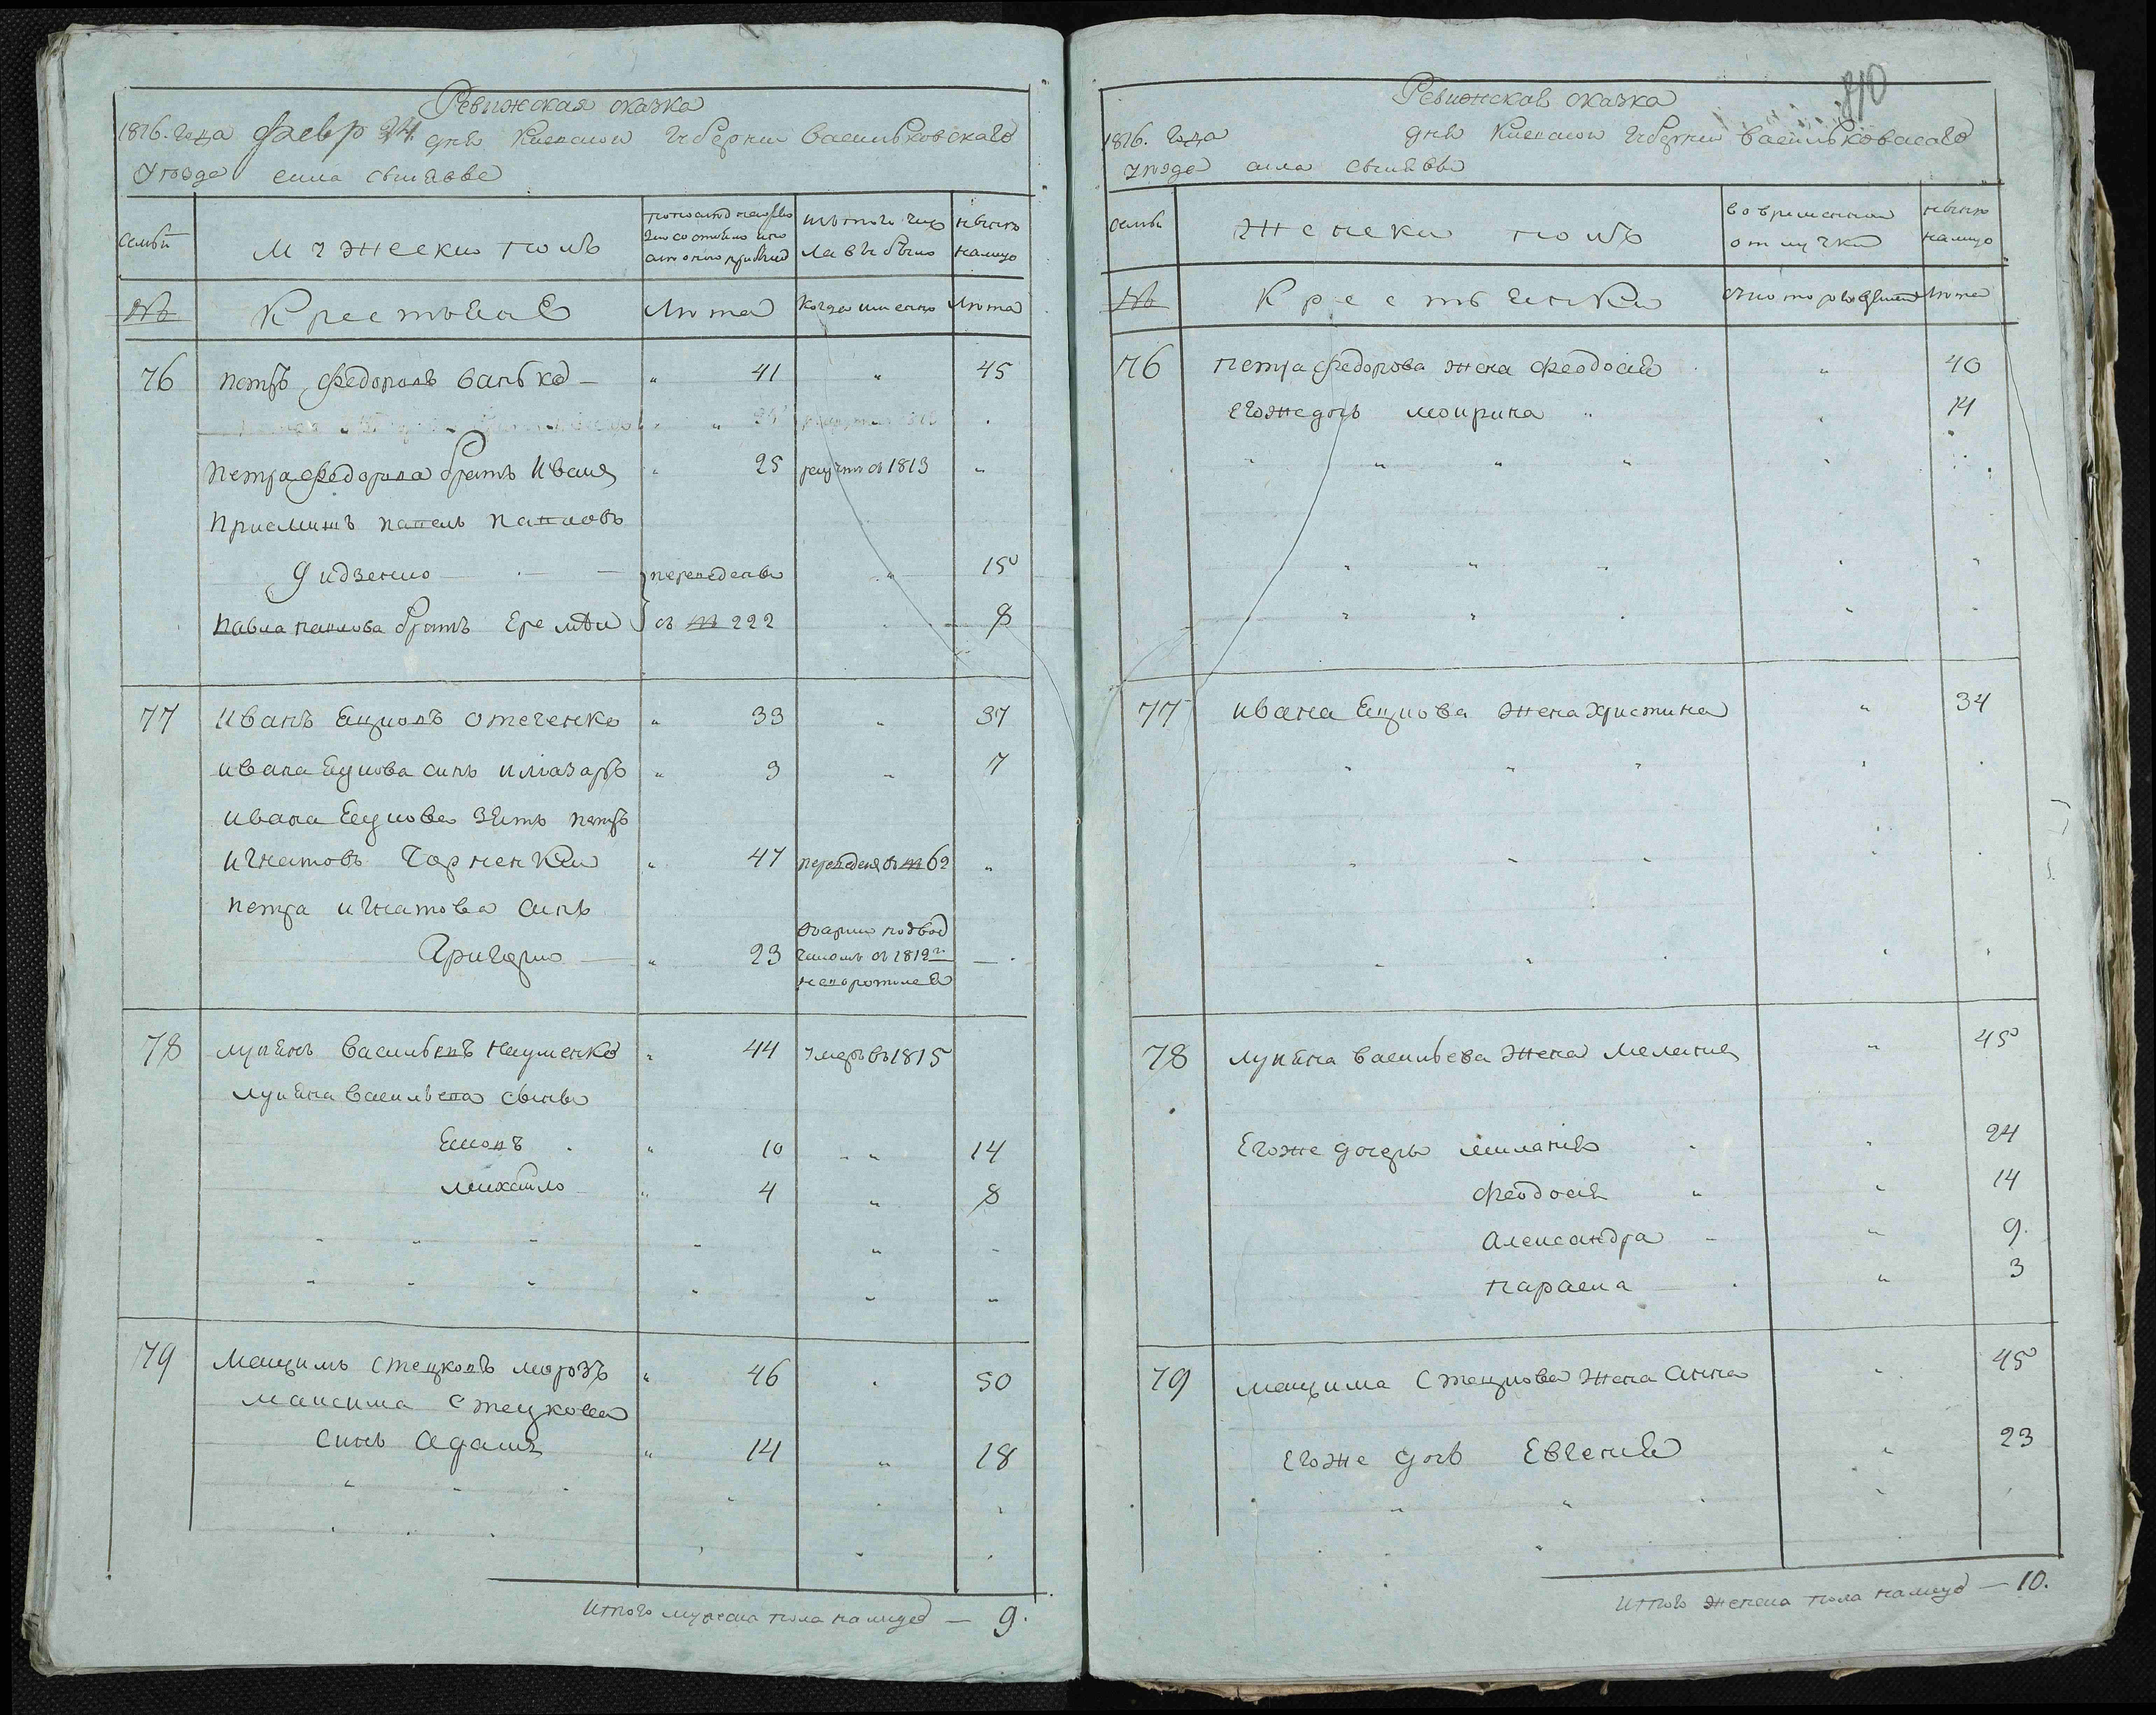 Ревижская сказка
1816. года февр 24. дня Киевской губернии васильковского
уезда села
семьи
мужески полъ
изъ того числа выбыло
ныне налицо
№
Крестьяне
Лета
Когда именно
Лета
76 петръ федоровъ ванька 41 45
петра федорова братъ иванъ 25 1813
приемишъ павелъ павловъ
дидзенко переведены 15
павла павлова братъ еремей съ № 222 8
77 иванъ яцковъ отеченко 33 37
ивана яцкова синъ назаръ 3 7
ивана яцкова зять петръ
игнатовъ чорненки 47 переведенъ въ № 62
петра игнатова синъ
григорио 23 1812
78 лукянъ васильевъ науменко 44 умеръ въ 1815
лукяна васильева сыны
10 14
михайло 4 8
79 макцимъ стецковъ морозъ 46 50
максима стецкова
синъ адамъ 14 18
итого мужеска пола налицо — 9.
Ревижская сказка
1816. года дня Киевской губернии васильковского
уезда села
семьи
женски полъ
во временной отлучке
ныне налицо
№
Крестьянки
Лета
76 петра федорова жена феодосия 40
егоже дочь 14
77 ивана яцкова жена христина 34
78 лукяна васильева жена мелания 45
егоже дочеры миланія 24
феодосия 14
александра 9.
параска 3
79 макцима стецкова жена анна 45
егоже дочь евгения 23
итого женска пола налицо — 10.